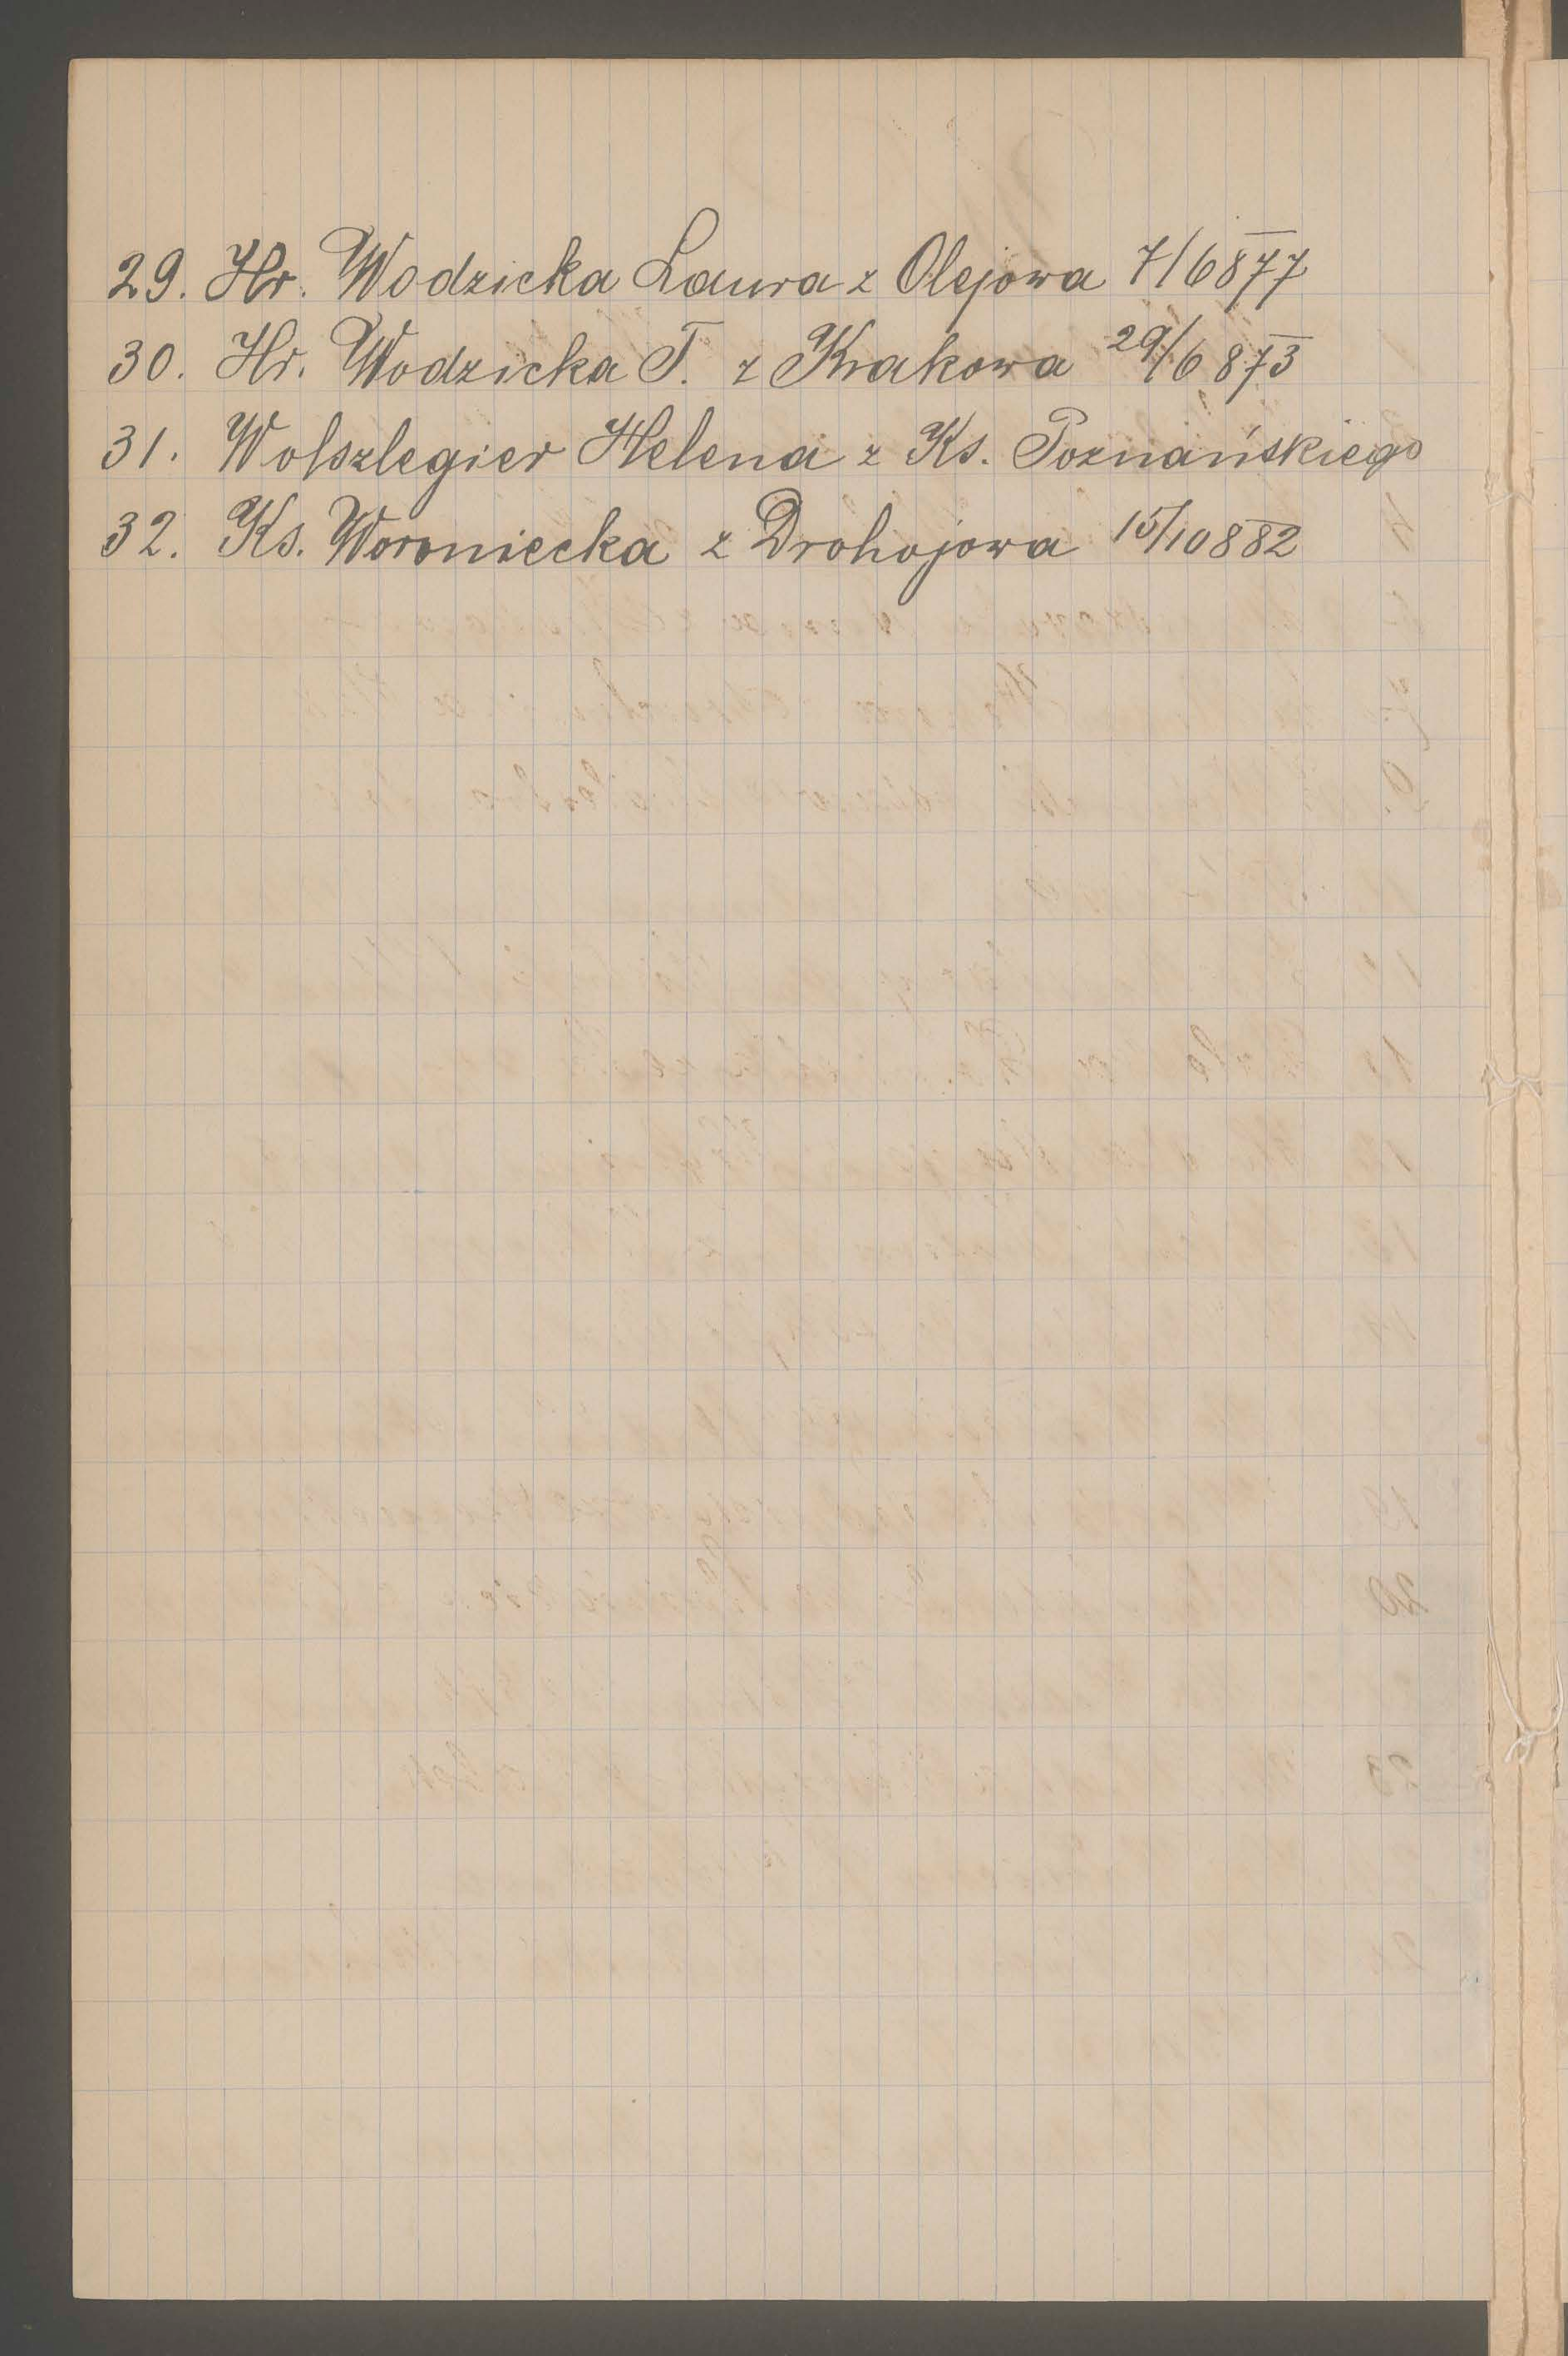 29. Hr. Wodzicka Laura z Olejowa 7/6 877
30. Hr. Wodzicka T. z Krakowa 29/6 873
31. Wolszlegier Helena z Ks. Poznańskiego
32. Ks. Woroniecka z Drohojowa 15/10 882